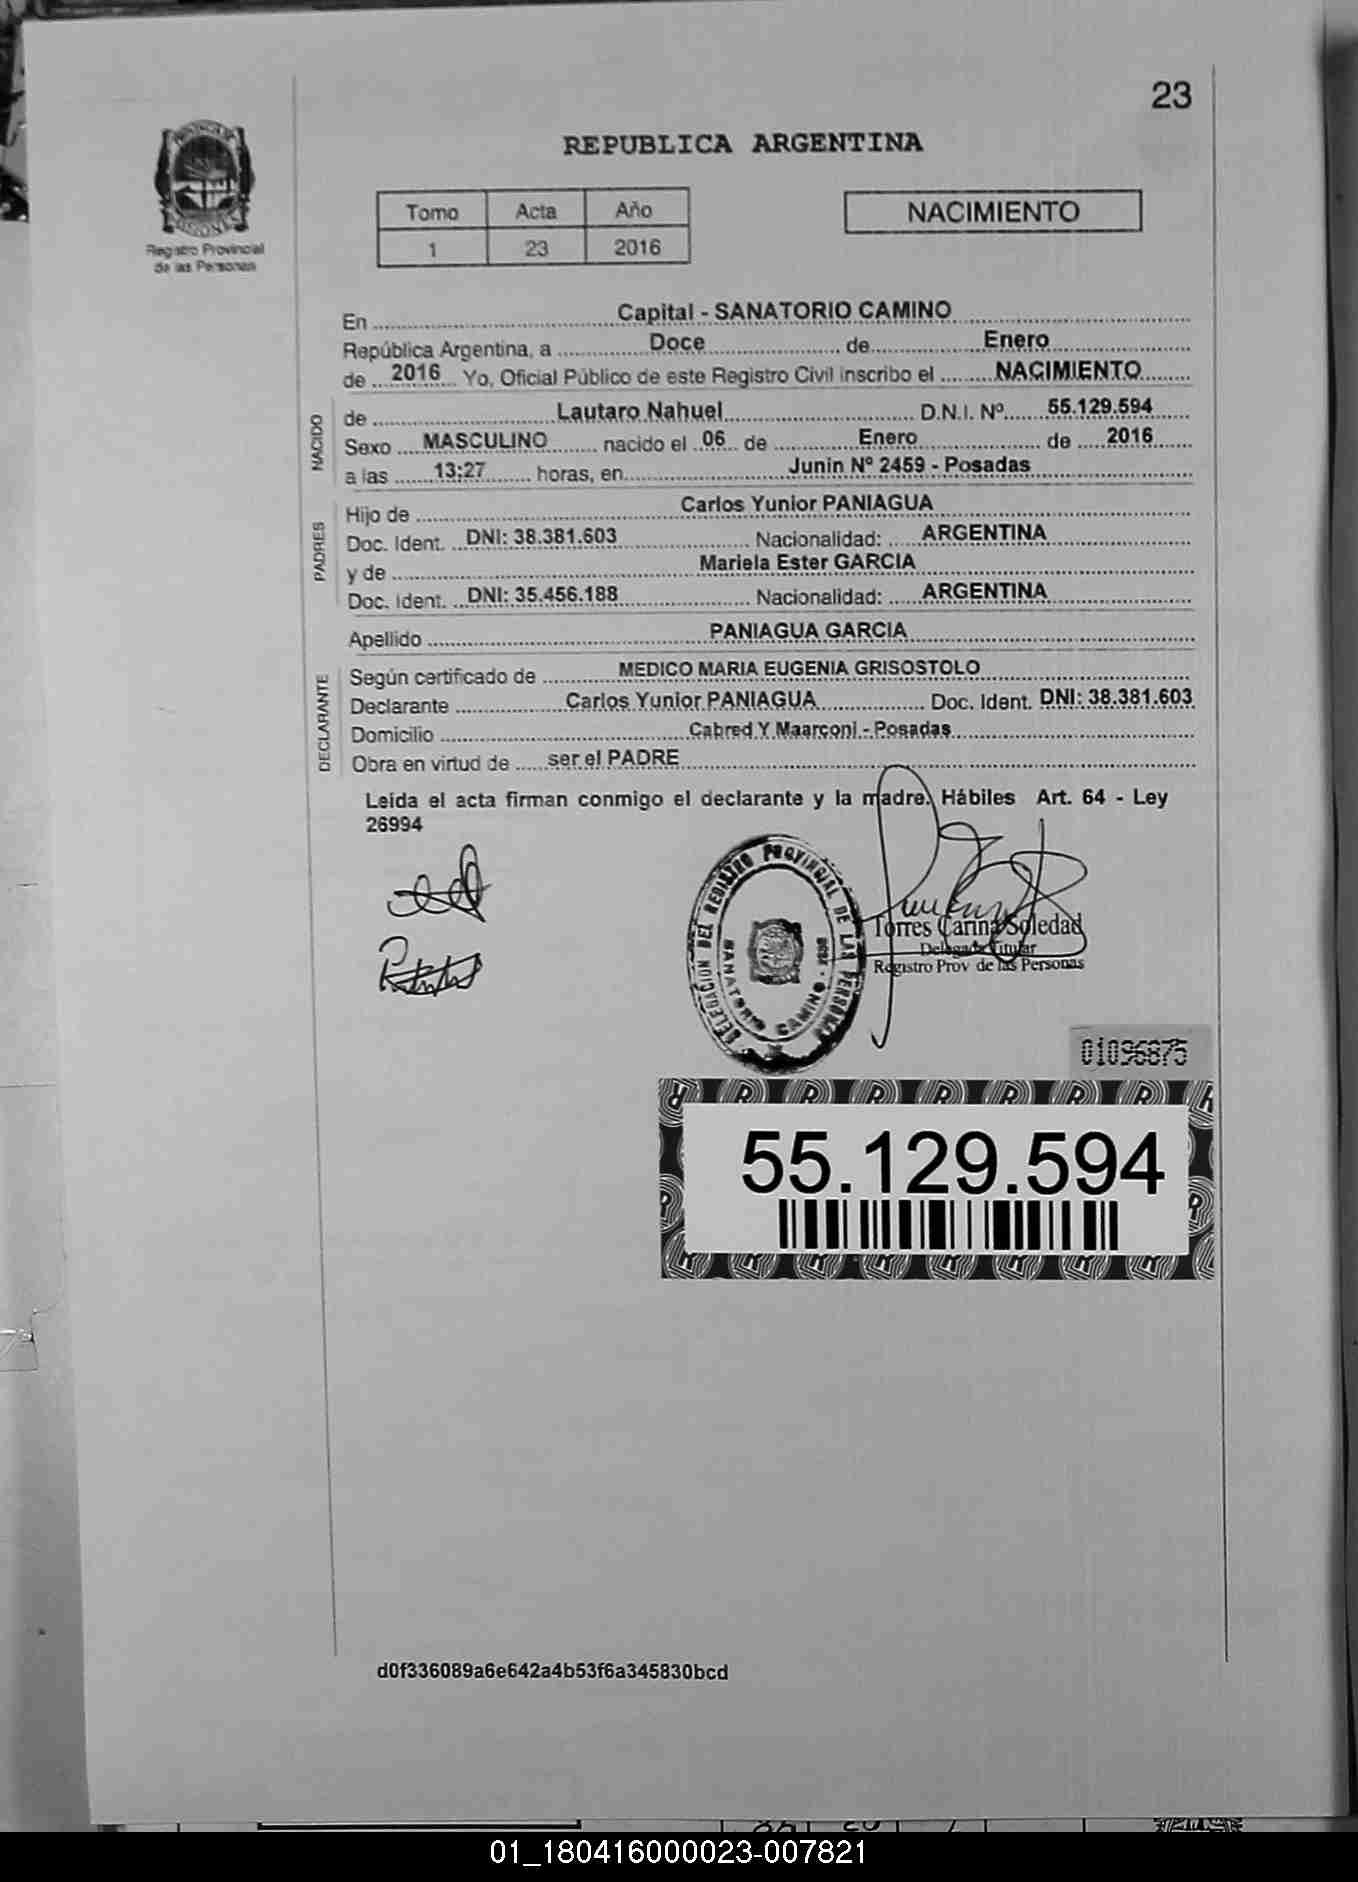 23
REPUBLICA ARGENTINA
Registro Provincial
de las Personas
Tomo Acta Año
1 23 2016
NACIMIENTO
En Capital - SANATORIO CAMINO
República Argentina, a Doce de Enero
de 2016 Yo, Oficial Público de este Registro Civil inscribo el NACIMIENTO
NACIDO
de Lautaro Nahuel D.N.I. Nº 55.129.594
Sexo MASCULINO nacido el 06 de Enero de 2016
a las 13:27 horas, en Junin Nº 2459 - Posadas
PADRES
Hijo de Carlos Yunior PANIAGUA
Doc. Ident. DNI: 38.381.603 Nacionalidad: ARGENTINA
y de Mariela Ester GARCIA
Doc. Ident. DNI: 35.456.188 Nacionalidad: ARGENTINA
Apellido PANIAGUA GARCIA
DECLARANTE
Según certificado de MEDICO MARIA EUGENIA GRISOSTOLO
Declarante Carlos Yunior PANIAGUA Doc. Ident. DNI: 38.381.603
Domicilio Cabred Y Maarconi - Posadas
Obra en virtud de ser el PADRE
Leída el acta firman conmigo el declarante y la madre. Hábiles Art. 64 - Ley
26994
DELEGACION DEL REGISTRO PROVINCIAL DE LAS PERSONAS
SANATORIO CAMINO
Torres Carina Soledad
Delegada Titular
Registro Prov de las Personas
01096875
55.129.594
d0f336089a6e642a4b53f6a345830bcd
01_180416000023-007821